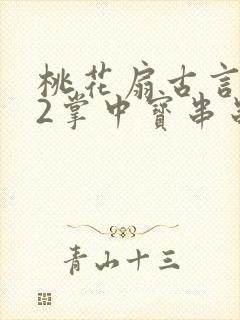 桃花扇古言
2掌中寶串
青山十三